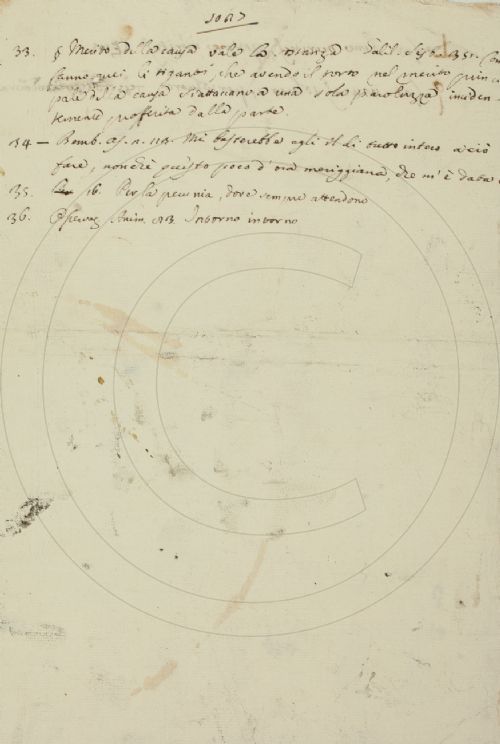 1087
33. § Merito della causa vale la. Istanza Galil. Sist. 351.
fanno quei litiganti che avendo il torto nel merito princi
pale della causa s'attaccano a una sola paroluzza inciden
temente profferita dalla parte.
34 — Bemb. As. n. 113. Mi basterebbe egli il dì tutto intero a ciò
fare, nonchè questo poco d'ora meriggiana, che m'è data
35. 16. Per la pecunia, dove sempre attendono
36. Anim. 83. Intorno intorno